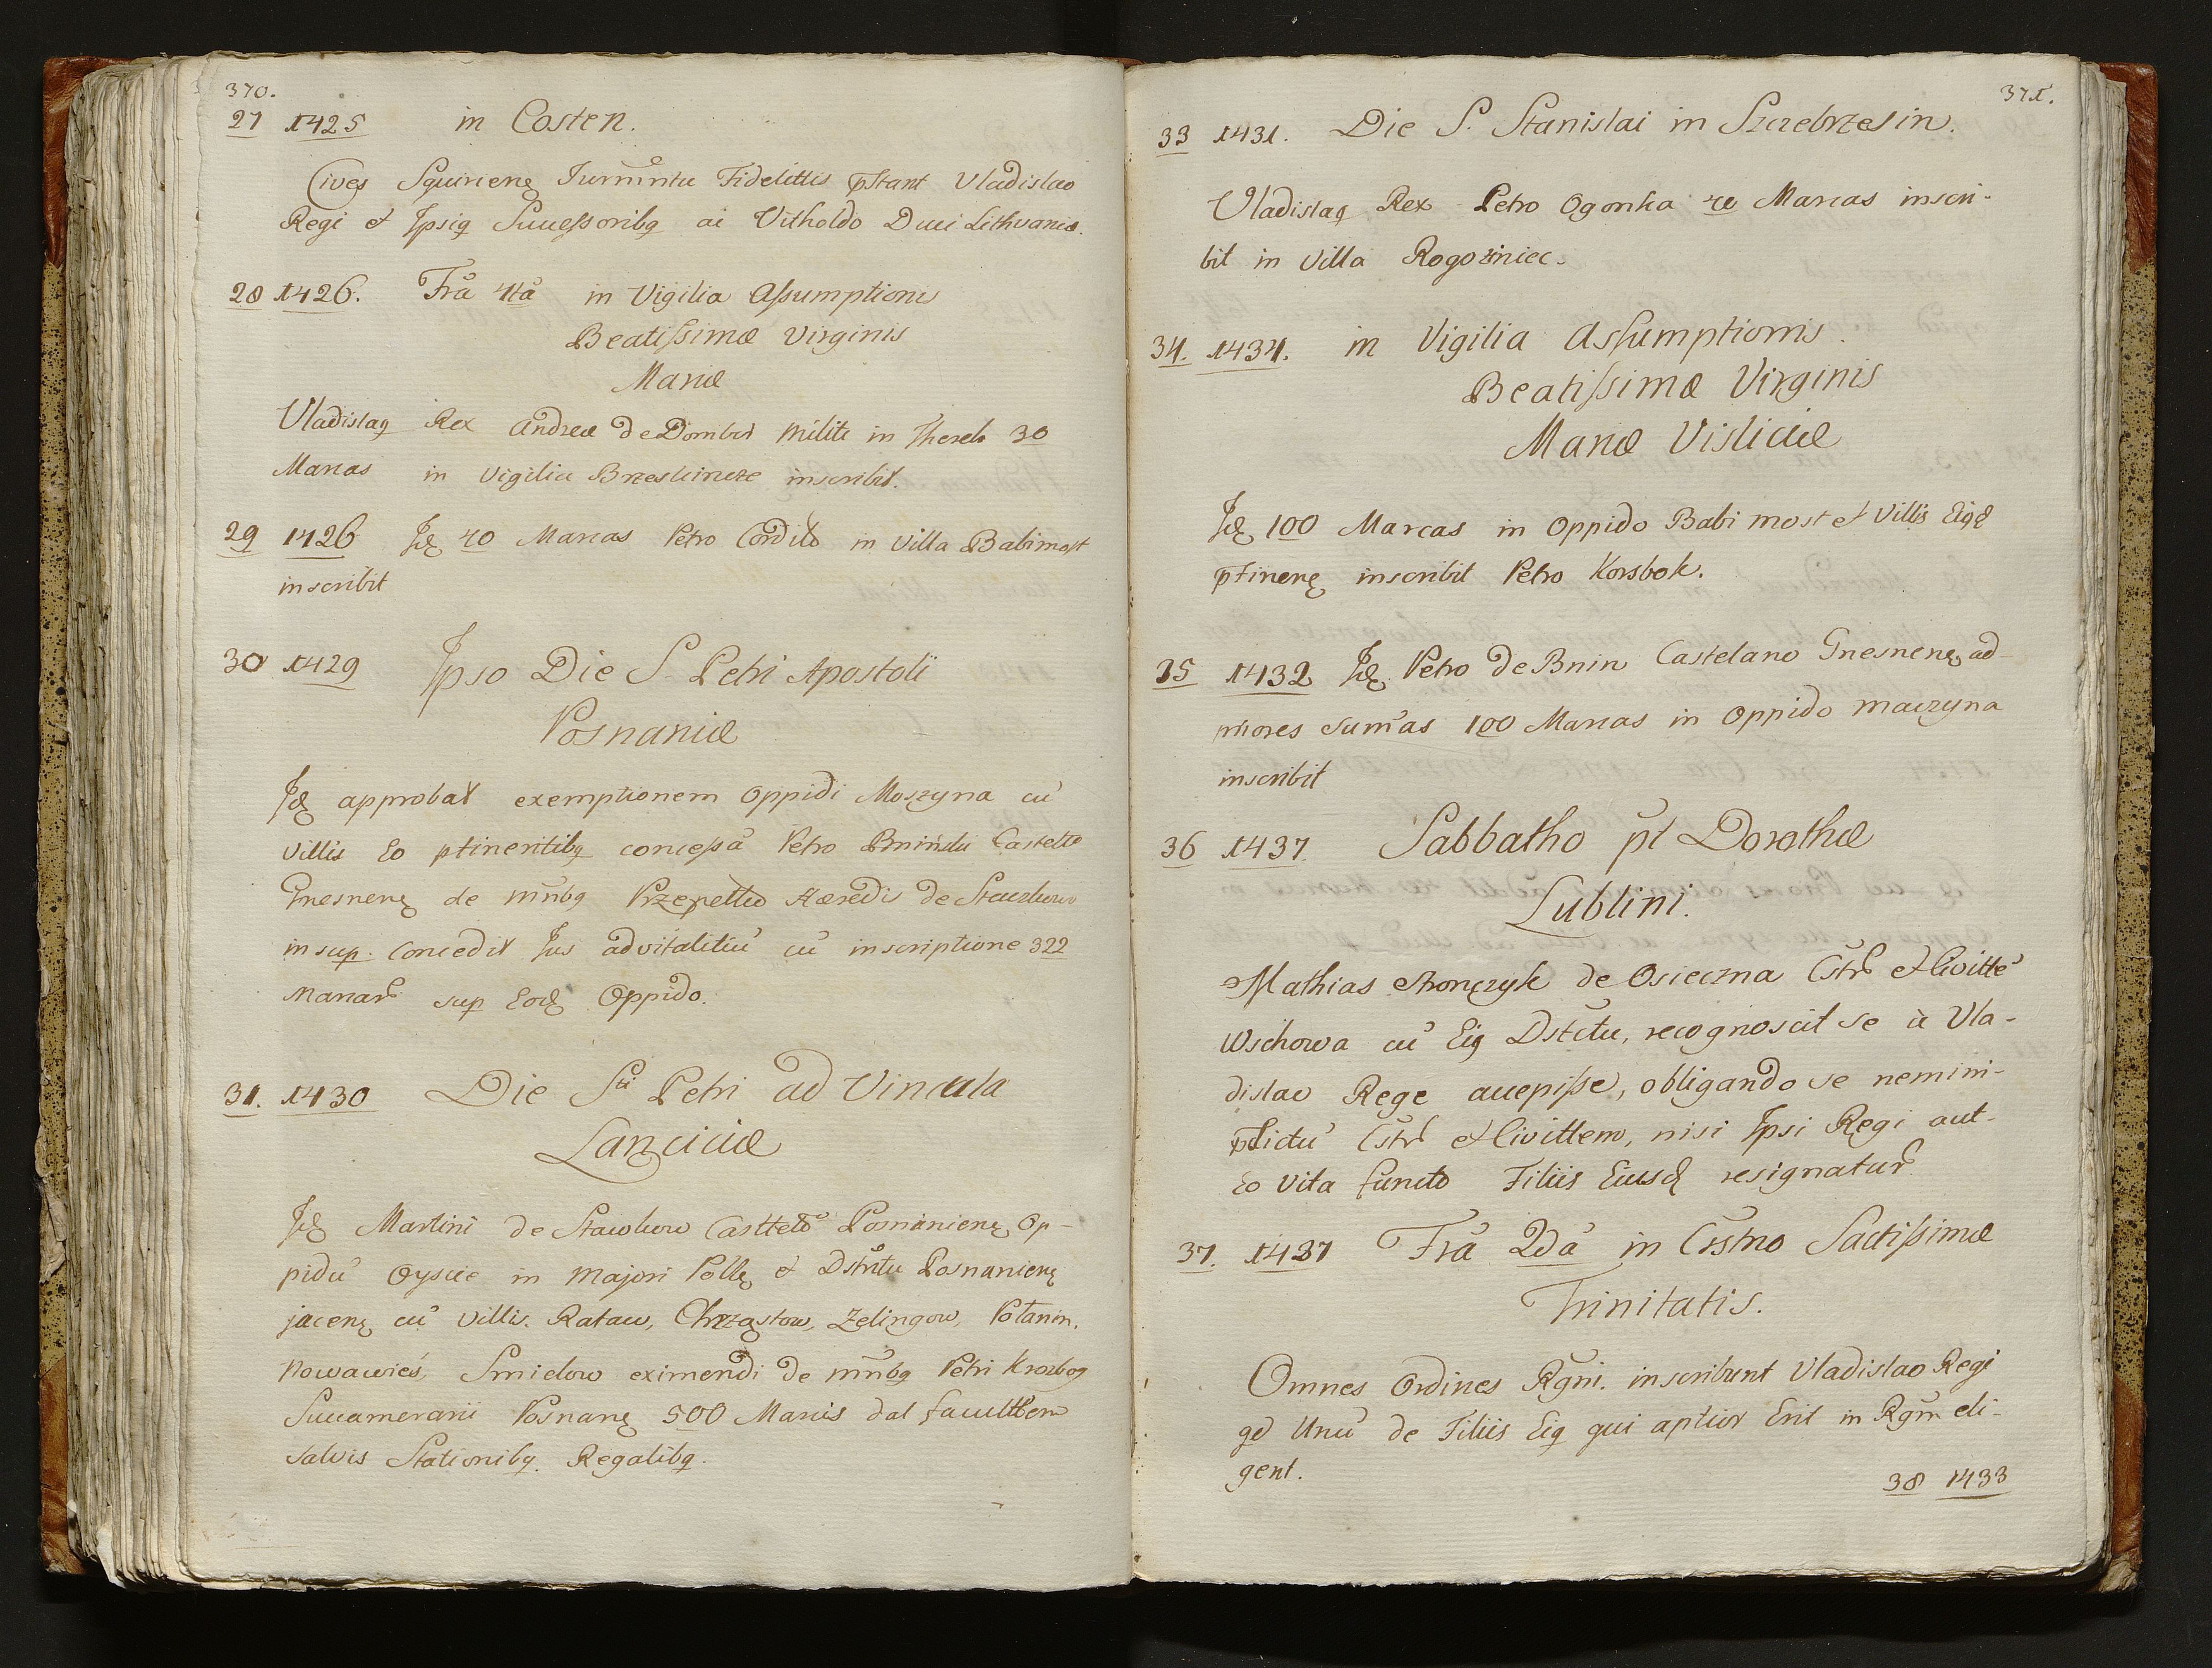 370.
27 1425 in Costen.
Cives Squirieneȝ Jurm̃ntu Fidelittis p̄stant Vladislao
Regi et Ipsiq Successoribq ac Vitholdo Duci Lithvaniæ.
28 1426. Fr̃a 4tã in Vigilia Assumptionis
Beatissimæ Virginis
Mariæ
Vladislaq Rex Andreæ De Dombet Militi in 30
Marcas in Vigilia inscribit.
29 1426 Jdȝ 40 Marcas Petro in Villa Babimost
inscribit
30 1429 Ipso Die S. Petri Apostoli
Posnaniæ
Jdȝ approbat exemptionem Oppidi Moszyna cũ
Villis Eo ptinentibq concessã Petro Bniński Castello
Gnesneneȝ de mñbq Hæredis de
insup. Concedit Jus advitalitiũ cũ inscriptione 322
Marcar̃ sup Eodȝ Oppido.
31. 1430 Die Sti Petri ad Vincula
Lanciciæ
Jdȝ Martini de Castteło Posnanieneȝ Op-
pidũ Oyscie in Majori Pollȝ et Dstrictu Posnanieneȝ
jaceneȝ cũ Villis. Rataw, Chrząstow, Zelingow, Potanin,
Nowawieś, Smielow eximendi De mñbq Petri Krozbog
Succamerarii Posnaneȝ 500 Marcis dat facultt̃em
salvis Stationibq. Regalibq.
371.
33 1431. Die S. Stanislai in Szczebrzesin.
Vladislaq Rex Petro Ogonka 40 Marcas inscri-
bit in Villa Rogoźniec.
34. 1434. in Vigilia Assumptionis.
Beatissimæ Virginis
Mariæ Visliciæ
Jdȝ 100 Marcas in Oppido Babi most et Villis Eiqȝ
p̄tineneȝ inscribit Petro Korsbok.
35 1432 Jdȝ Petro de Bnin Castelano Gnesneneȝ ad-
priores Sum̃as 100 Marcas in Oppido maczyna
inscribit
36 1437. Sabbatho p̃t Dorothæ
Lublini.
Mathias de Osieczna Cstr̃ et Civittẽ
Wschowa cũ Eiq Dstctu, recognoscit se à Vla-
dislao Rege accepisse, obligando se nemini-
p̄dictũ Cstr̃ et Civittem, nisi Ipsi Regi aut-
Eo Vita functo Filiis Eiusdȝ resignatur̃
37. 1437 Fr̃a 2dã in Crstno Sactissimæ
Trinitatis.
Omnes Ordines Rg̃ni. inscribunt Vladislao Regi
qd̃ Unũ de Filiis Eiq qui aptior Erit in Rgm̃ eli-
gent.
38 1433